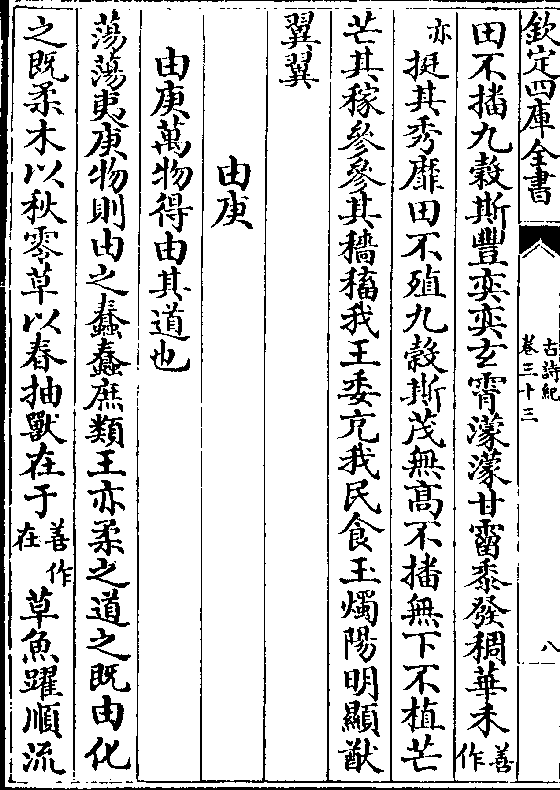 欽定四庫全書
古詩紀
卷三十三
八
田不播九穀斯豐奕奕玄霄濛濛甘霤黍發稠華禾善作
亦挺其秀靡田不殖九穀斯茂無高不播無下不植芒
芒其稼參參其穡稸我王委充我民食玉燭陽明顯猷
翼翼
由庚
由庚萬物得由其道也
蕩蕩夷庚物則由之蠢蠢庶類王亦柔之道之既由化
之既柔木以秋零草以春抽獸在于善作在草魚躍順流